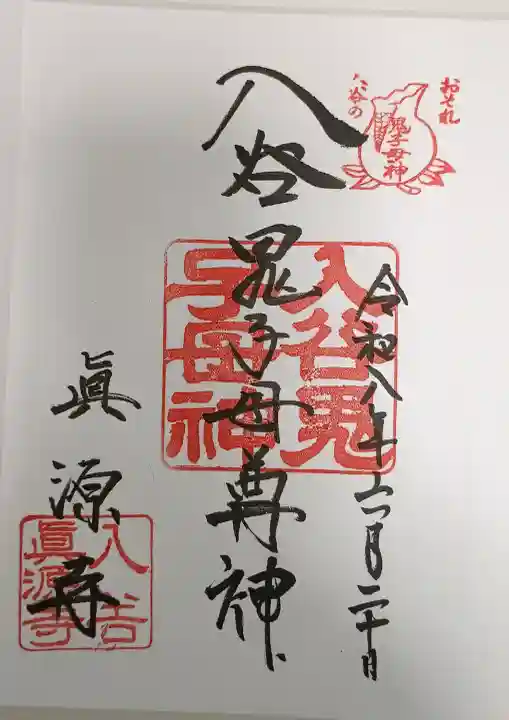 おそれ
入谷の
鬼子母神
令和八年六月二十日
入谷鬼子母尊神
入谷鬼
子母神
眞源寺
入谷
眞源寺